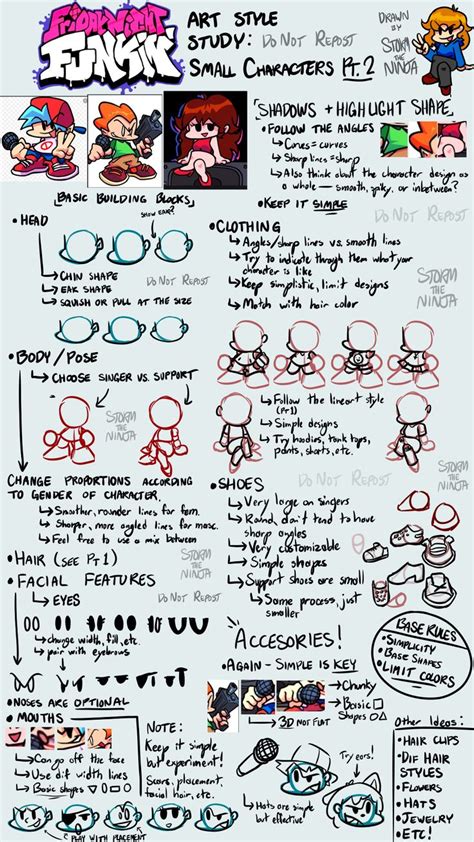 FRIDAY NIGHT
FUNKIN'
ART STYLE
STUDY: DO NOT REPOST
SMALL CHARACTERS PT. 2
DRAWN
BY
STORM
THE
NINJA
SHADOWS + HIGHLIGHT SHAPE
• FOLLOW THE ANGLES
↳ Curves = curves
↳ Sharp lines = sharp
↳ Also think about the character design as
a whole — smooth, spiky, or inbetween?
• KEEP IT SIMPLE
BASIC BUILDING BLOCKS
SHOW EAR?
• HEAD
↳ CHIN SHAPE
↳ EAR SHAPE
↳ SQUISH OR PULL AT THE SIZE
DO NOT REPOST
DO NOT REPOST
• CLOTHING
↳ Angles/sharp lines vs. smooth lines
↳ Try to indicate through them what your
character is like
↳ Keep simplistic, limit designs
↳ Match with hair color
STORM
THE
NINJA
• BODY / POSE
↳ CHOOSE SINGER VS. SUPPORT
STORM
THE
NINJA
CHANGE PROPORTIONS ACCORDING
TO GENDER OF CHARACTER.
↳ Smoother, rounder lines for fem.
↳ Sharper, more angled lines for masc.
↳ Feel free to use a mix between
↳ Follow the lineart style
(Pt 1)
↳ Simple designs
↳ Try hoodies, tank tops,
pants, skorts, etc.
STORM
THE
NINJA
• SHOES
DO NOT REPOST
↳ Very large on singers
↳ Round, don't tend to have
sharp angles
↳ Very customizable
↳ Simple shapes
↳ Support shoes are small
↳ Same process, just
smaller
• HAIR (SEE PT 1)
STORM
THE
NINJA
• FACIAL FEATURES
↳ EYES
DO NOT REPOST
↳ change width, fill, etc.
↳ pair with eyebrows
• NOSES ARE OPTIONAL
• MOUTHS
↳ Can go off the face
↳ Use dif width lines
↳ Basic shapes
↳ PLAY WITH PLACEMENT
NOTE:
Keep it simple
but experiment!
Scars, placement,
facial hair, etc.
ACCESORIES!
• AGAIN - SIMPLE IS KEY
↳ Chunky
↳ Basic
Shapes
↳ 3D NOT FLAT
Try ears!
↳ Hats are simple
but effective!
BASE RULES
• SIMPLICITY
• BASE SHAPES
• LIMIT COLORS
OTHER IDEAS:
• HAIR CLIPS
• DIF HAIR
STYLES
• FLOWERS
• HATS
• JEWELRY
• ETC!